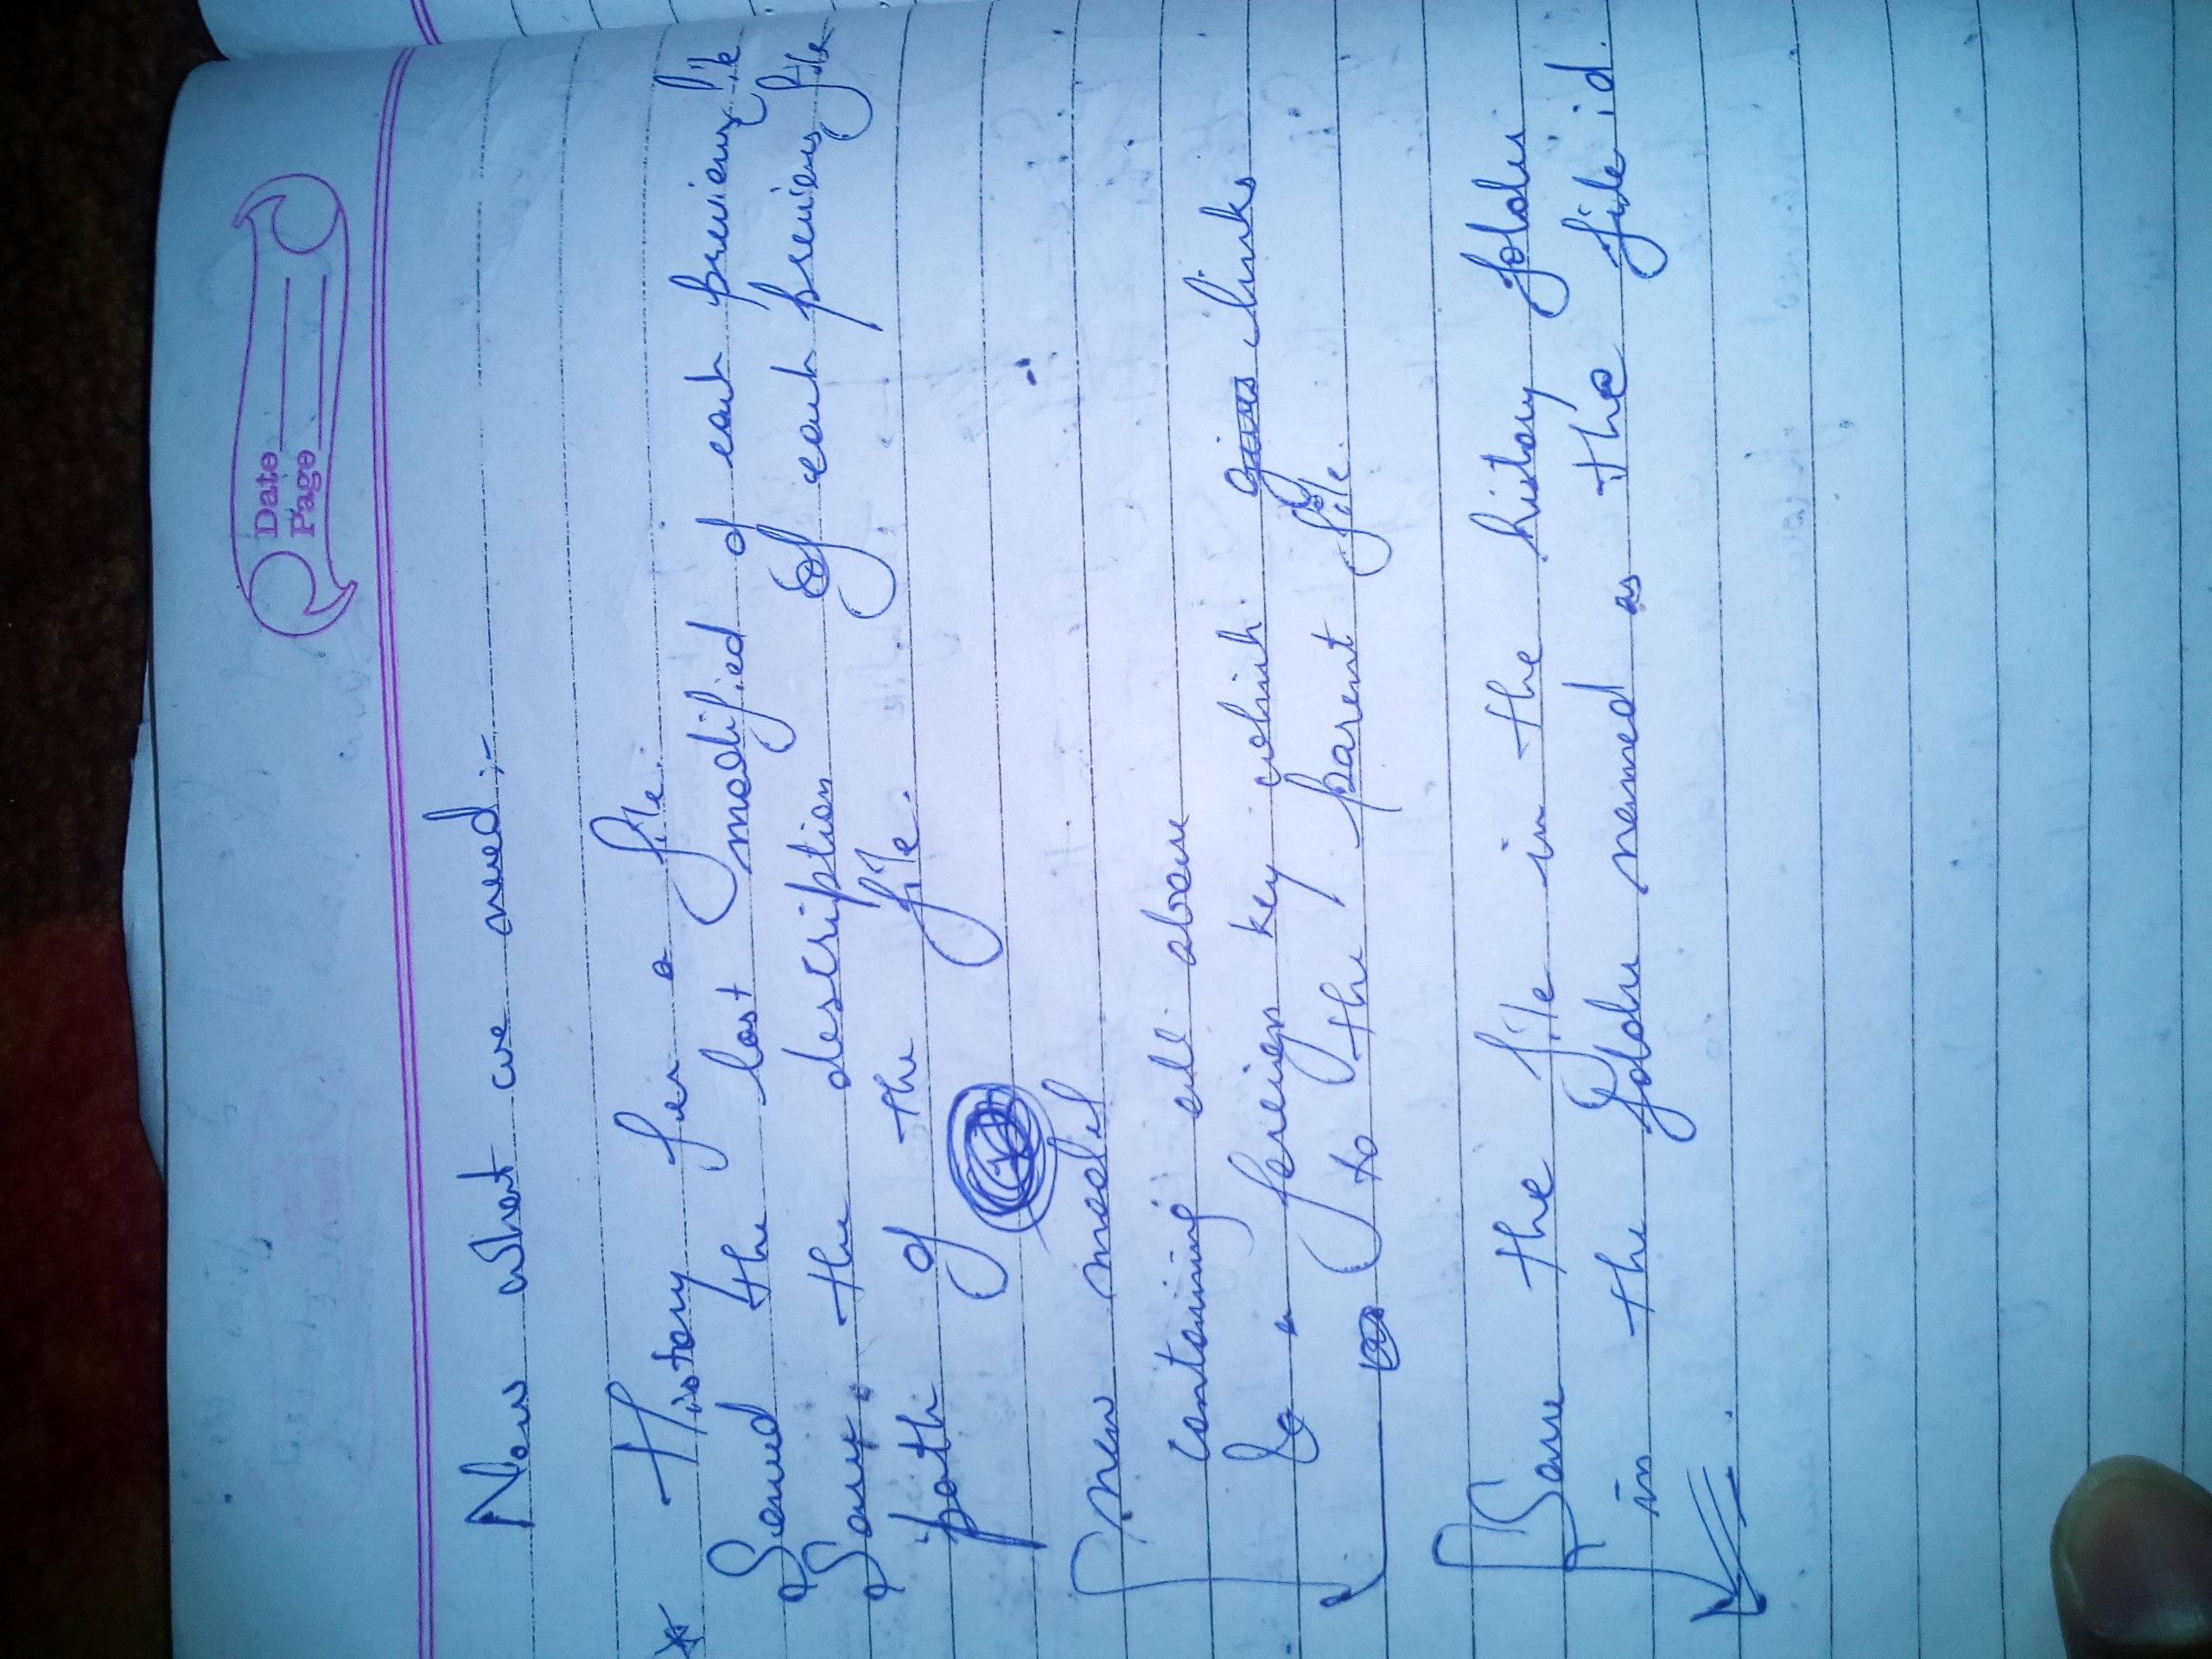 Date
Page
Now what we need:-
* History for a file.
the last modified of each previous file
the description of each previous file
path of the file.
new model
containing all above
& a foreign key which links
to the parent file.
Save the file in the history folder
in the folder named as the file id.